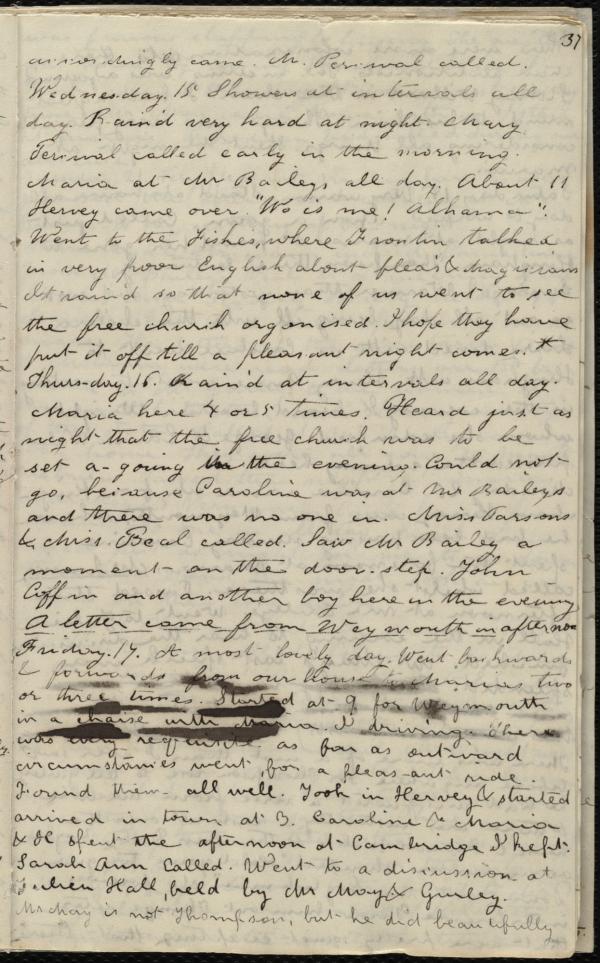 37
accordingly came. M. Percival called.
Wednesday. 15. Showers at intervals all
day. Rain'd very hard at night. Mary
Percival called early in the morning.
Maria at Mr Baileys all day. About 11
Hervey came over. "Wo is me! Alhama".
Went to the Fishes, where Frontin talked
in very poor English about fleas & Magicians
It raind so that none of us went to see
the free church organised. I hope they have
put it off till a pleasant night comes. *
Thurs-day. 16. Rain'd at intervals all day.
Maria here 4 or 5 times. Heard just as
night that the free church was to be
set a-going in the evening. Could not
go, because Caroline was at Mr Baileys
and there was no one in. Miss Parsons
& Miss. Beal called. Saw Mr Bailey a
moment on the door-step. John
Coffin and another boy here in the evening
A letter came from Weymouth in afternoo
Friday. 17. A most lovely day. Went backwards
& forwards from our house to Marias two
or three times. Started at 9 for Weymouth
in a chaise with Maria, I driving. There
was every requisite as far as outward
circumstances went, for a pleas-ant ride.
Found them all well. Took in Hervey & started
arrived in town at 3. Caroline & Maria
& H spent the afternoon at Cambridge I kept.
Sarah Ann called. Went to a discussion at
Julien Hall, held by Mr May & Gurley.
Mr May is not Thompson, but he did beautifully